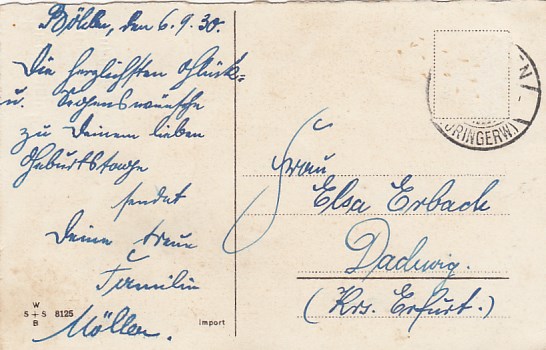 Böhlen, den 6.9.30.
Die herzlichsten Glück-
u. Segenswünsche
zu Deinem lieben
Geburtstage
sendet
Deine treue
Familie
Möller.
W
S + S 8125
B
import
Frau
Elsa Erbach
Dachwig.
(Krs. Erfurt.)
EN
ÜRINGERW